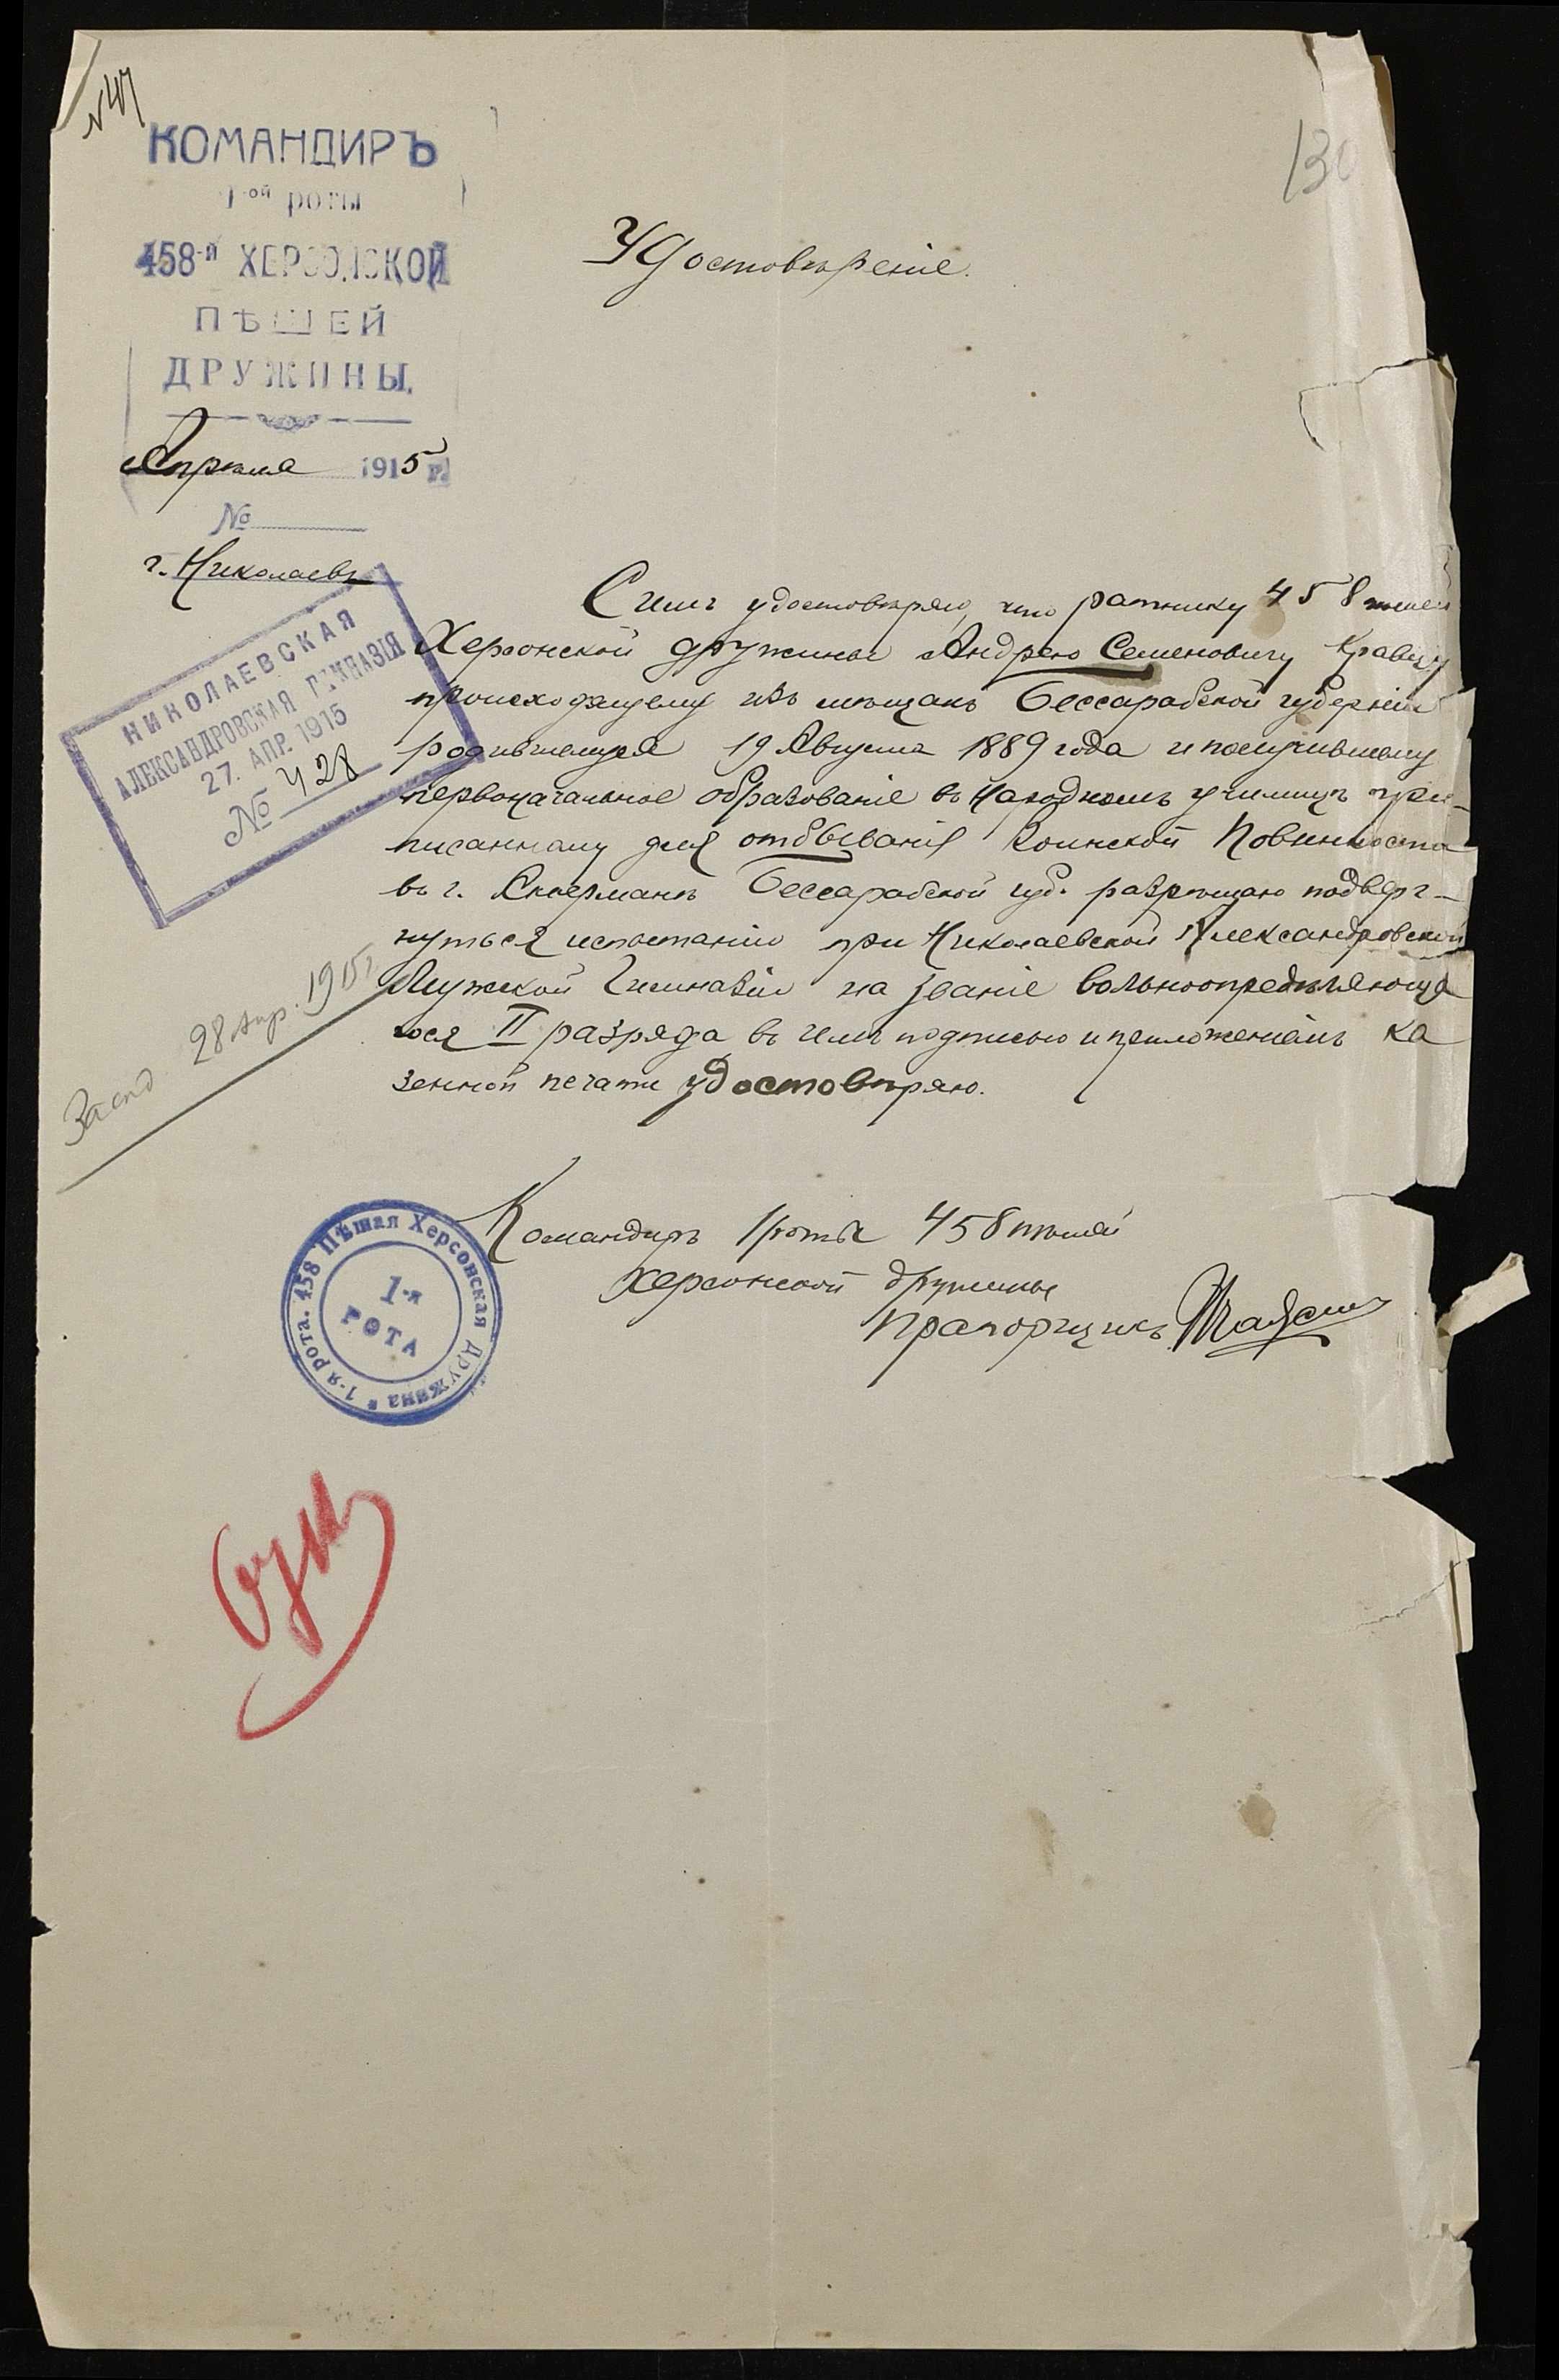 КОМАНДИРЪ
1-ой роты
458-й ХЕРСОНСКОЙ
ПѢШЕЙ
ДРУЖИНЫ.
Апрѣля 1915 г.
№
г. Николаевъ
130
Удостовѣреніе.
НИКОЛАЕВСКАЯ
АЛЕКСАНДРОВСКАЯ ГИМНАЗІЯ
27. АПР. 1915
№ 428
Симъ удостовѣряю, что ратнику 458 пѣшей
Херсонской дружины Андрею Семеновичу Кравцу
происходящему изъ мѣщанъ Бессарабской губерніи
родившемуся 19 Августа 1889 года и получившему
первоначальное образованіе въ Народномъ училищѣ при-
писанному для отбыванія Воинской Повинности
въ г. Аккерманѣ Бессарабской губ. разрѣшаю подверг-
нуться испытанію при Николаевской Александровской
Мужской Гимназіи на званіе вольноопредѣляюща
гося II разряда въ чемъ подписью и приложеніемъ ка
зенной печати удостовѣряю.
28 Апр. 1915 г.
Командиръ 1 роты 458 пѣшей
Херсонской дружины
Прапорщикъ
458 Пѣшая Херсонская Дружина * 1-я рота.
1-я
РОТА